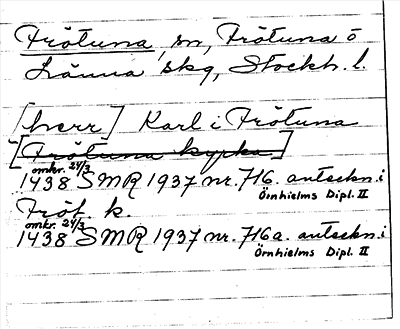 Frötuna, sn, Frötuna o
Länna skg, Stockh. l.
[herr] Karl i Frötuna
[Frötuna kyrka]
omkr. 24/3
1438 SMR 1937 nr. 716. anteckn. i
Örnhielms Dipl. II
Fröt. k.
omkr. 24/3
1438 SMR 1937 nr. 716a. anteckn. i
Örnhielms Dipl. II